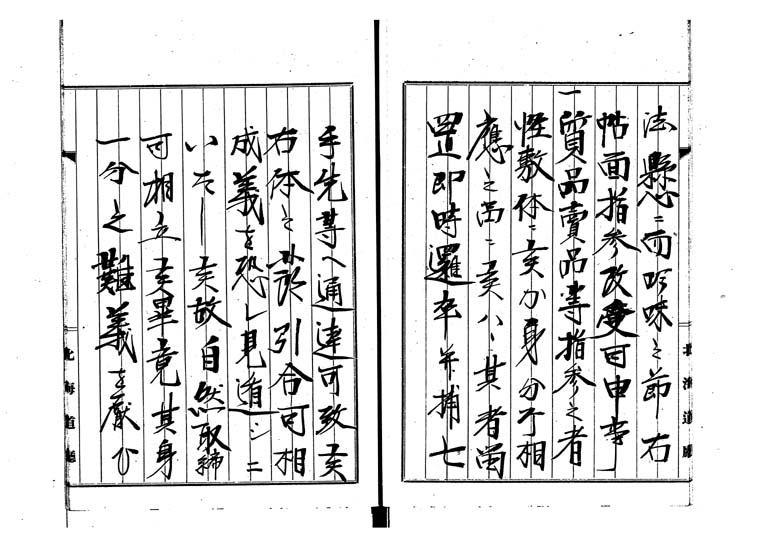 法懸ニ而吟味之節右
帖面指参改受可申事
一質品賣品等指参之者
怪敷体ニ而身分不相
應之品ニ候ハヽ其者留
置即時邏卒并捕亡
手先等ヘ通達可致候
右体之節引合可相
成義を恐レ見遁シニ
いたし候故自然取締
可相立候畢竟其身
一分之難義を厭ひ
北海道廰
北海道廰